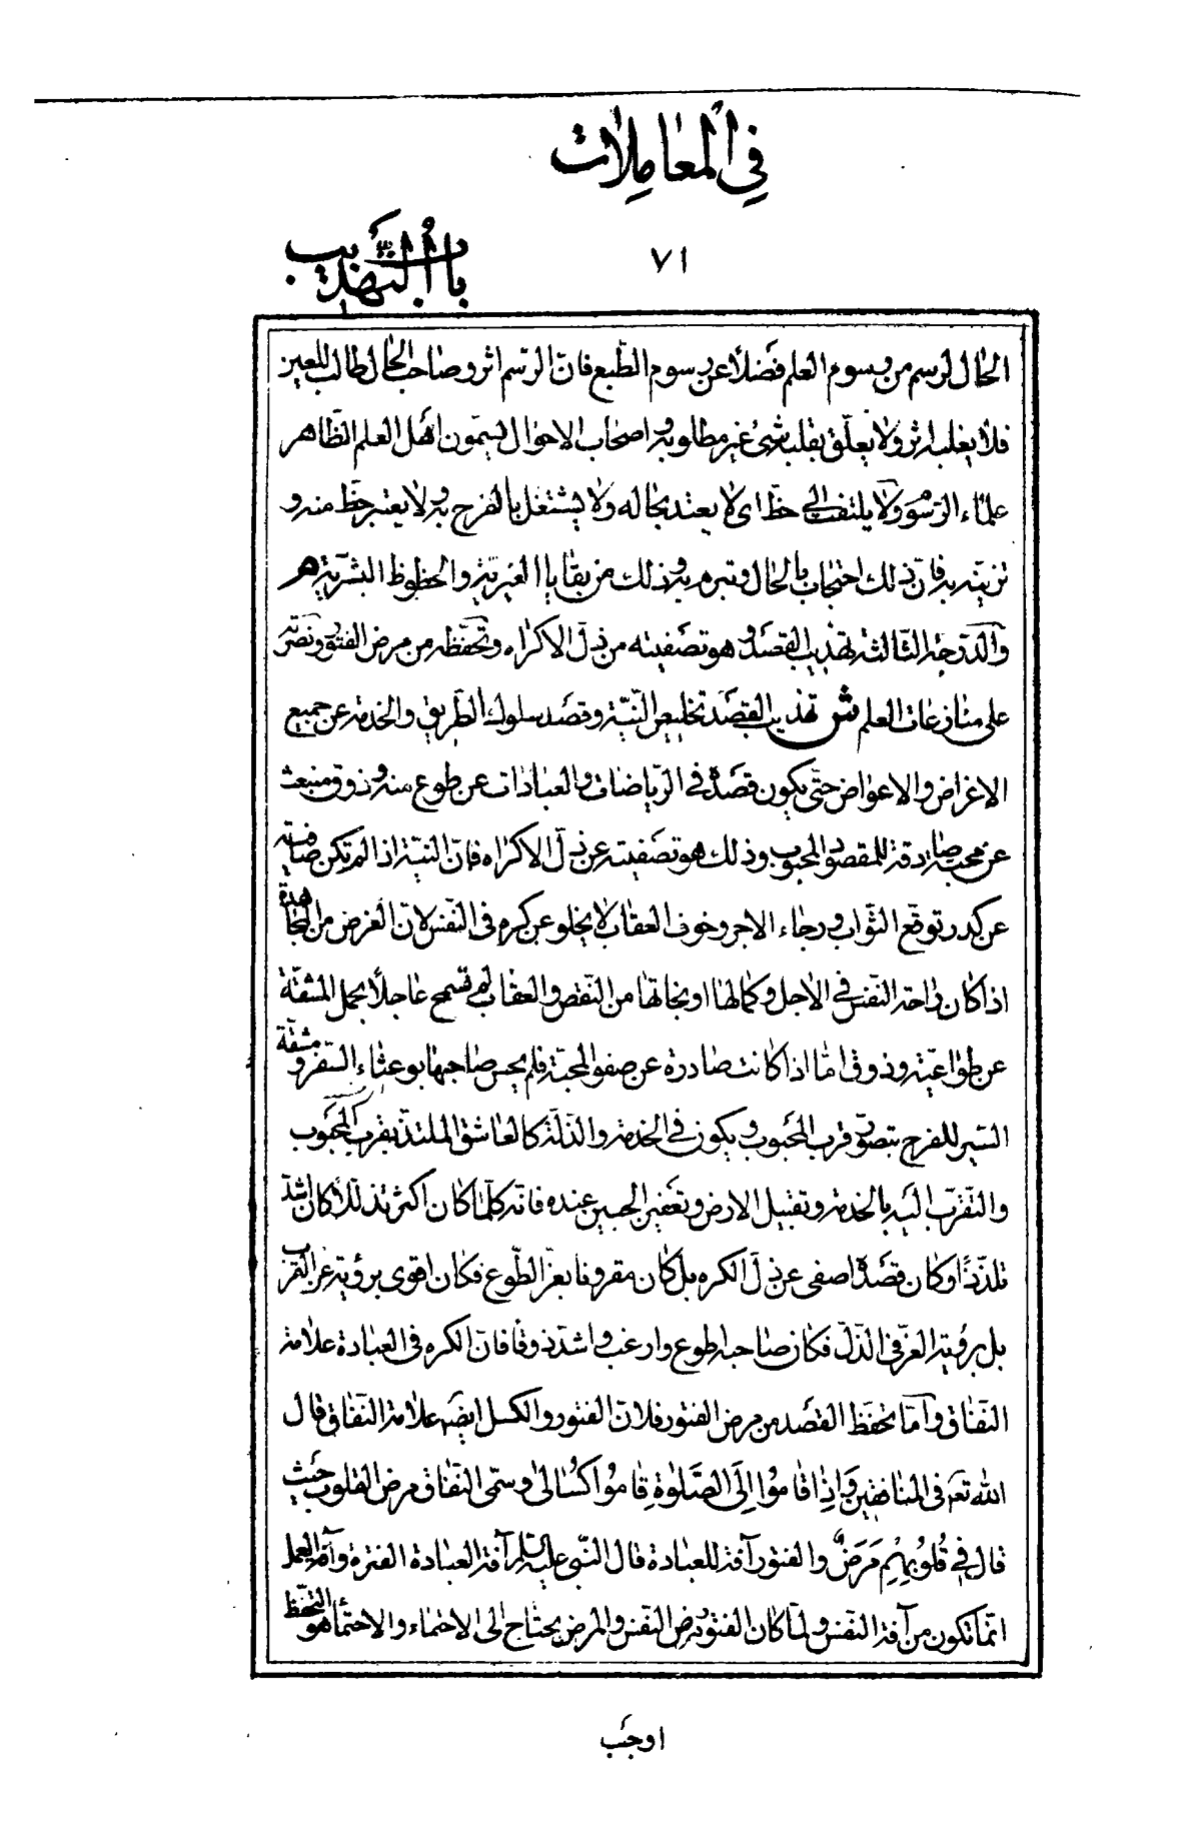 في المعاملات
٧١
باب التهذيب
الحال لرسم من رسوم العلم فضلًا عن رسوم الطبع فان الرسم اثر وصاحب الحال طالب للعين
فلا يغلبه اثر ولا يعلّق بقلبه شئ غير مطلوبه واصحاب الاحوال يسمون اهل العلم الظاهر
علماء الرسوم ولا يلتفت الى حظ اى لا يعتد بحاله ولا يشتغل بالفرح به ولا يعتبر حظ منه و
تزينه به فان ذلك احتجاب بالحال وتبره به وذلك من بقايا الغيرية والحظوظ البشرية هر
والدرجة الثالثة تهذيب القصد وهو تصفيته من ذل الاكراه وتحفظه من مرض الفتور ونصرته
على منازعات العلم ش تهذيب القصد تخليص النية وقصد سلوك الطريق والخدمة عن جميع
الاغراض والاعواض حتى يكون قصده في الرياضات والعبادات عن طوع منه وذوق منبعث
عن محبة صادقة للمقصود المحبوب وذلك هو تصفيته عن ذل الاكراه فان النية اذا لم تكن صافية
عن كدر توقع الثواب ورجاء الاجر وخوف العقاب لا يخلو عن كره في النفس لان الغرض من المجاهدة
اذا كان راحة النفس في الاجل وكمالها او نجاتها من النقص والعقاب لم تسمح عاجلًا بحمل المشقة
عن طواعية وذوق اما اذا كانت صادرة عن صفو المحبة فلم يحس صاحبها بوعثاء السفر و مشقة
السير للفرح بتصور قرب المحبوب ويكون في الخدمة والذلة كالعاشق الملتذ بقرب المحبوب
والتقرب اليه بالخدمة وتقبيل الارض وتعفير الجبين عنده فانه كلما كان اكثر تذللًا كان اشد
تلذذًا وكان قصده اصفى عن ذل الكره بل كان مقرونا بعز الطوع فكان اقوى برؤيته عن القرب
بل برؤية العز في الذل فكان صاحبه اطوع وارغب واشد ذوقًا فان الكره في العبادة علامة
النفاق واما تحفظ القصد من مرض الفتور فلان الفتور والكسل ايضا علامة النفاق قال
الله تعم في المنافقين وَاِذا قامُوا اِلَى الصَّلوةِ قامُوا كُسالى وسمى النفاق مرض القلوب حيث
قال في قُلُوبِهِم مَرَضٌ والفتور آفة للعبادة قال النبي عليه السلم آفة العبادة الفترة وآفة العمل
انما تكون من آفة النفس ولما كان الفتور مرض النفس والمرض يحتاج الى الاحتماء والاحتماء هو التحفظ
اوجب